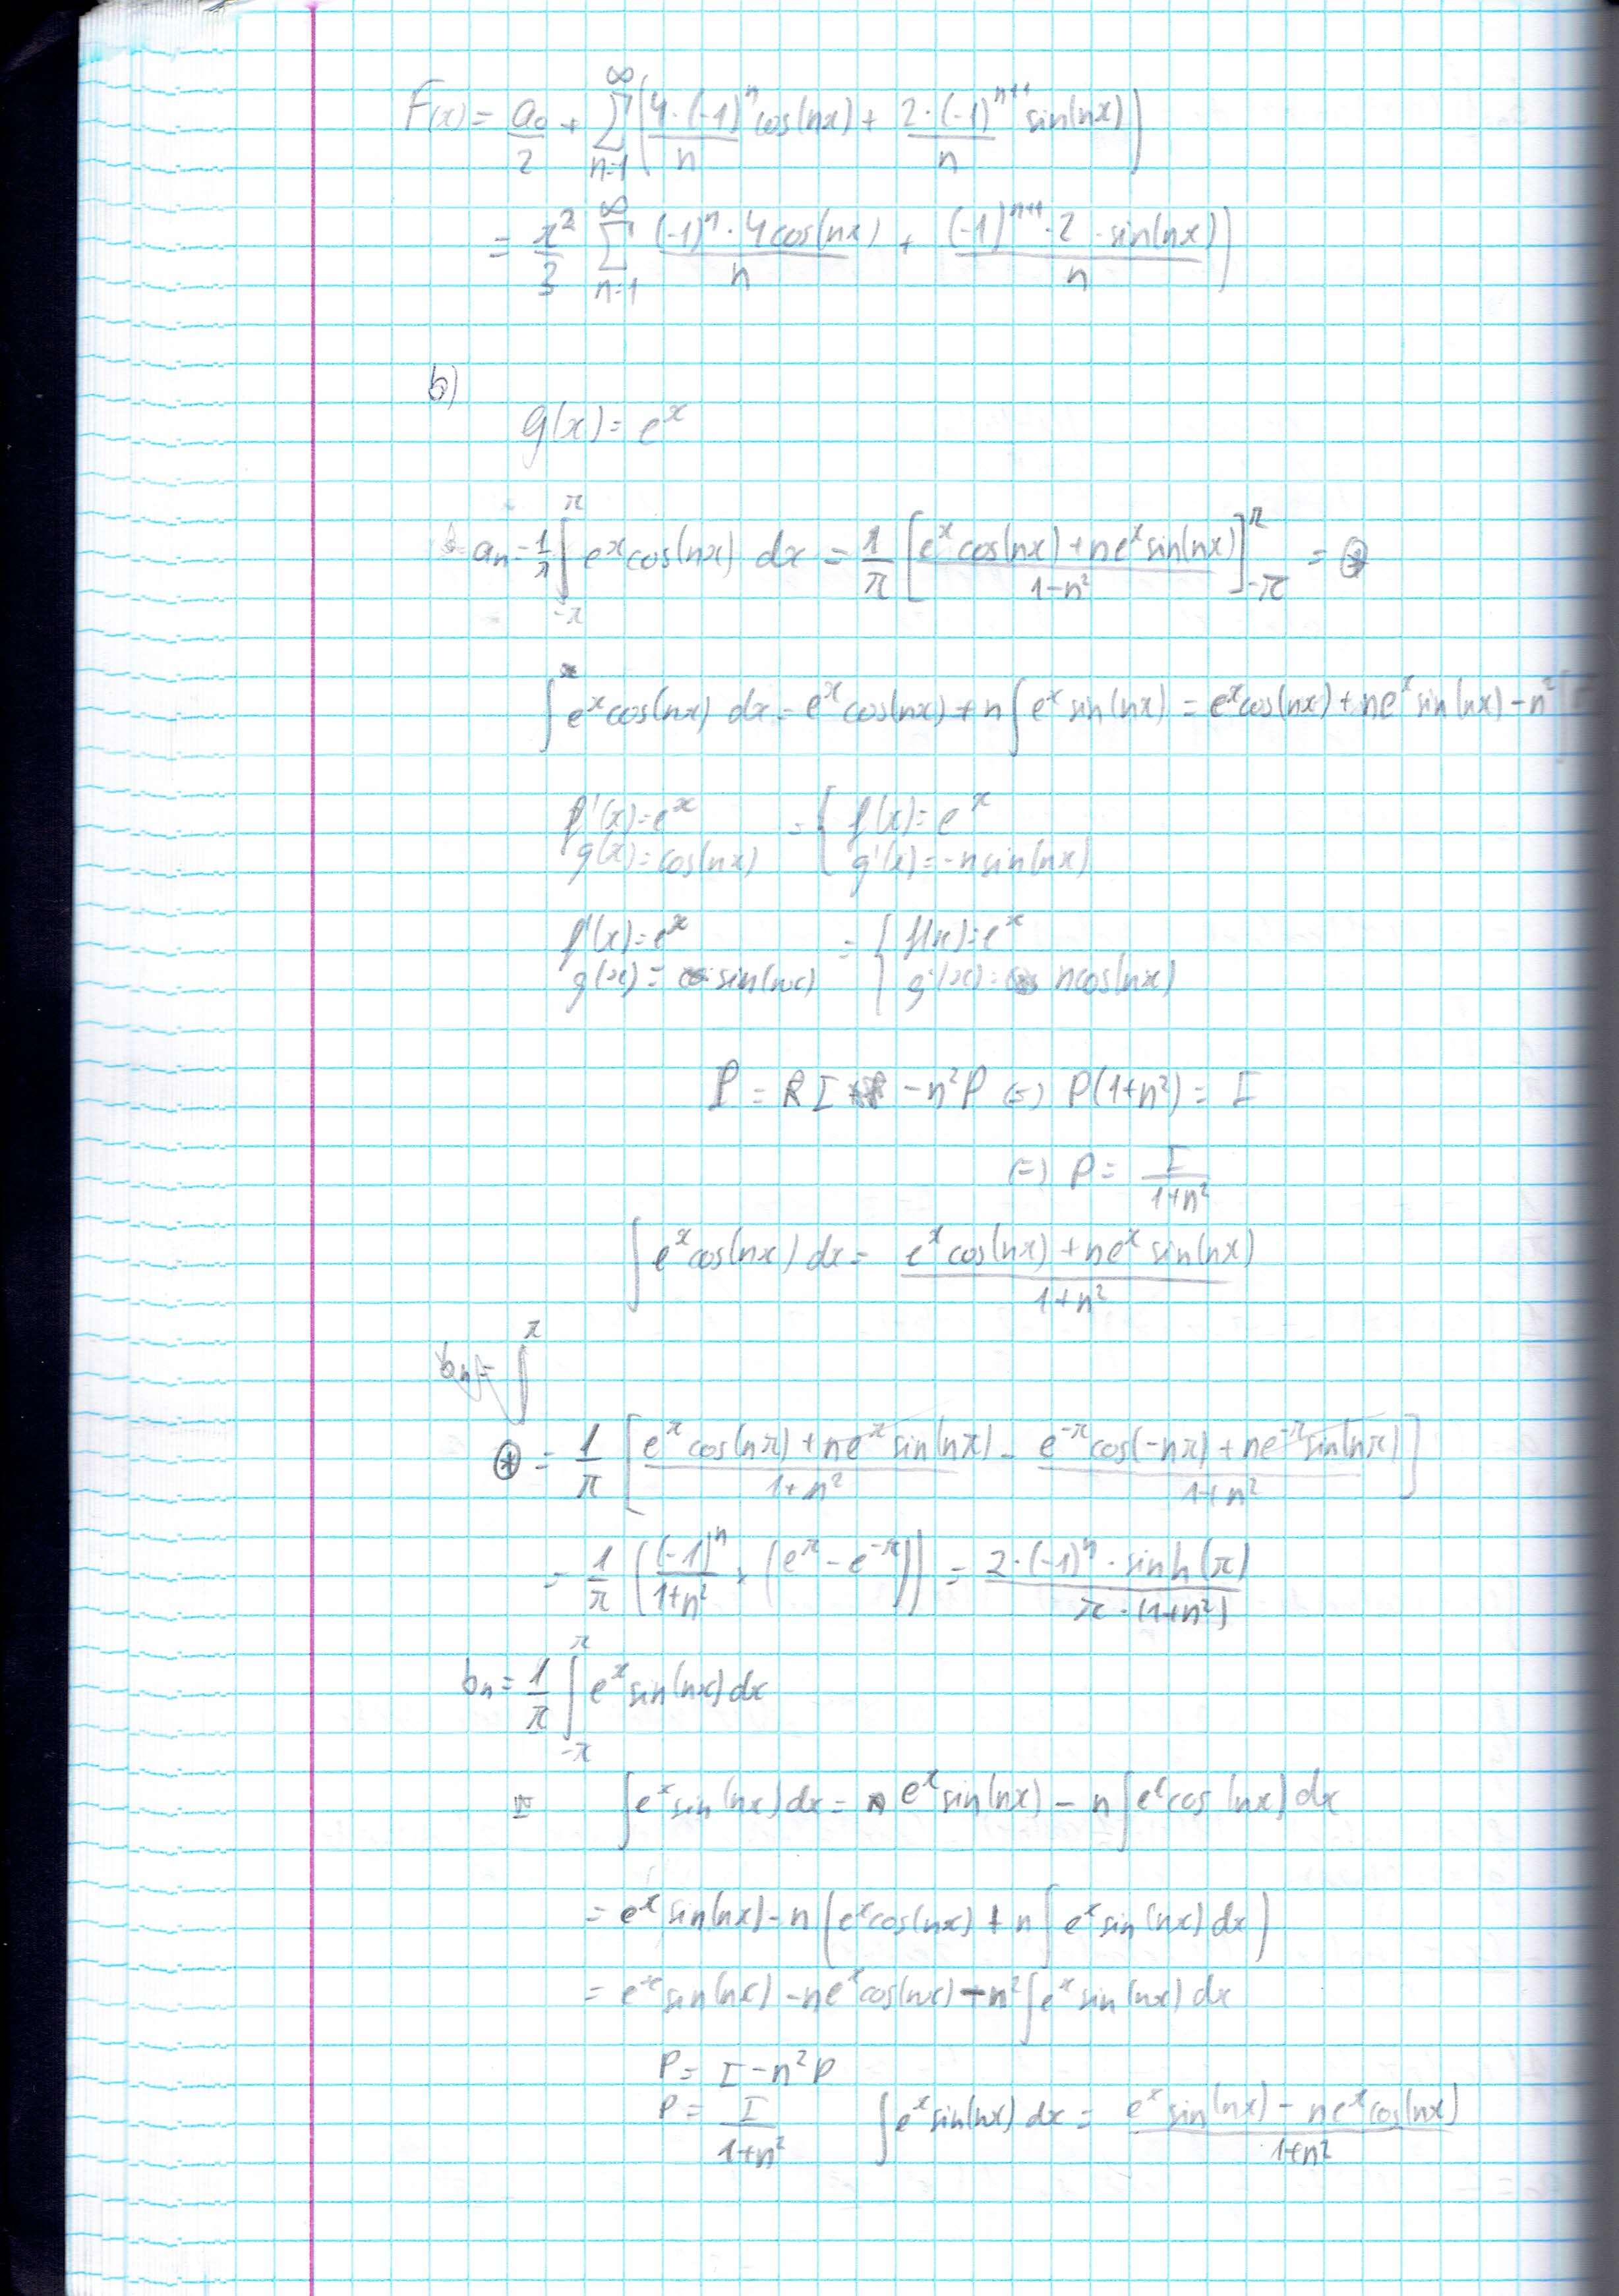 F(x) = a₀/2 + ∑_{n=1}^{∞} (4·(-1)ⁿ/n cos(nx) + 2·(-1)ⁿ⁺¹/n sin(nx))
= π²/3 ∑_{n=1}^{∞} (-1)ⁿ·4cos(nx)/n + (-1)ⁿ⁺¹·2·sin(nx)/n)
b)
g(x) = eˣ
aₙ = 1/π ∫_{-π}^{π} eˣcos(nx) dx = 1/π [(eˣcos(nx) + neˣsin(nx))/(1-n²)]_{-π}^{π} = ⊛
∫ eˣcos(nx) dx = eˣcos(nx) + n∫eˣsin(nx) = eˣcos(nx) + neˣsin(nx) - n²∫
f'(x) = eˣ = { f(x) = eˣ
g(x) = cos(nx) g'(x) = -nsin(nx)
f'(x) = eˣ = { f(x) = eˣ
g(x) = sin(nx) g'(x) = ncos(nx)
P = I - n²P (=) P(1+n²) = I
(=) P = I/(1+n²)
∫eˣcos(nx) dx = (eˣcos(nx) + neˣsin(nx))/(1+n²)
bₙ = ∫^{π}
⊛ = 1/π [(e^π cos(nπ) + ne^π sin(nπ))/(1+n²) - (e^{-π}cos(-nπ) + ne^{-π}sin(nπ))/(1+n²)]
= 1/π ((-1)ⁿ/(1+n²) · (e^π - e^{-π})) = 2·(-1)ⁿ·sinh(π)/(π·(1+n²))
bₙ = 1/π ∫_{-π}^{π} eˣsin(nx) dx
I ∫eˣsin(nx) dx = eˣsin(nx) - n∫eˣcos(nx) dx
= eˣsin(nx) - n(eˣcos(nx) + n∫eˣsin(nx) dx)
= eˣsin(nx) - neˣcos(nx) - n²∫eˣsin(nx) dx
P = I - n²P
P = I/(1+n²) ∫eˣsin(nx) dx = (eˣsin(nx) - neˣcos(nx))/(1+n²)